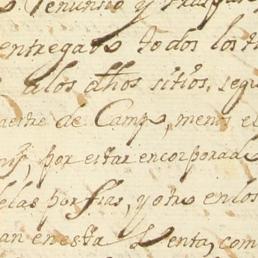 Renuncio y traspas
entregado todos los ti
a los dhos sitios, segu
aestre de Campo, menos el
por estar encorporado
elas por fias, y otro en los
an en esta Venta, com